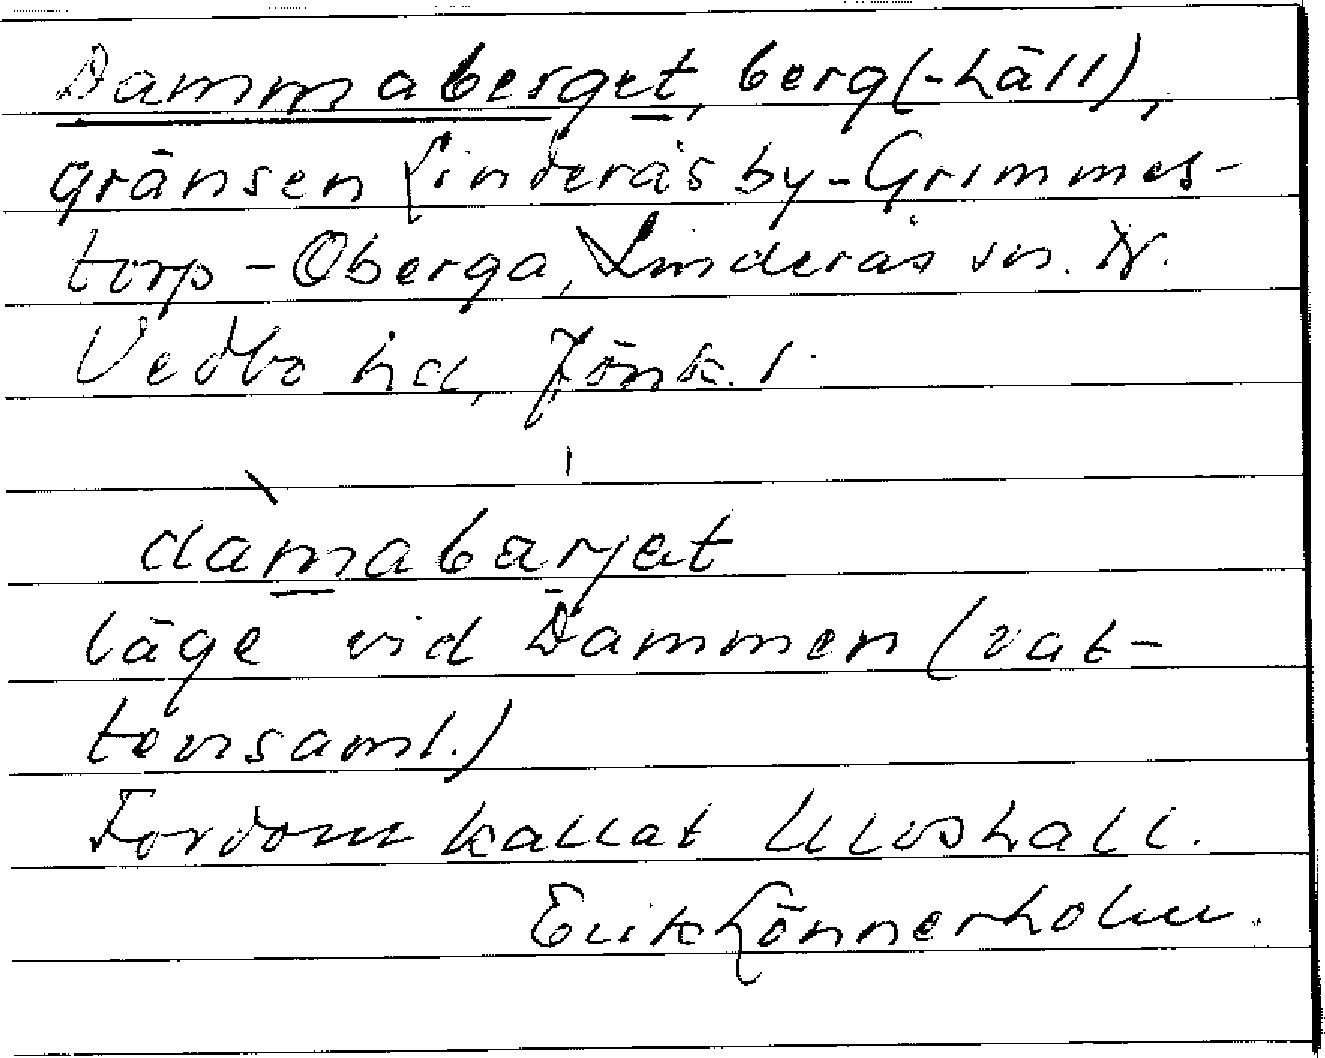 Dammaberget, berg(-häll),
gränsen Linderås by-Grimmes-
torp - Oberga, Linderås sn. N.
Vedbo hd, Jönk. l.
damabärjet
läge vid Dammen (vat-
tensaml.)
Fordom kallat Ulvshall.
Erik Lönnerholm.